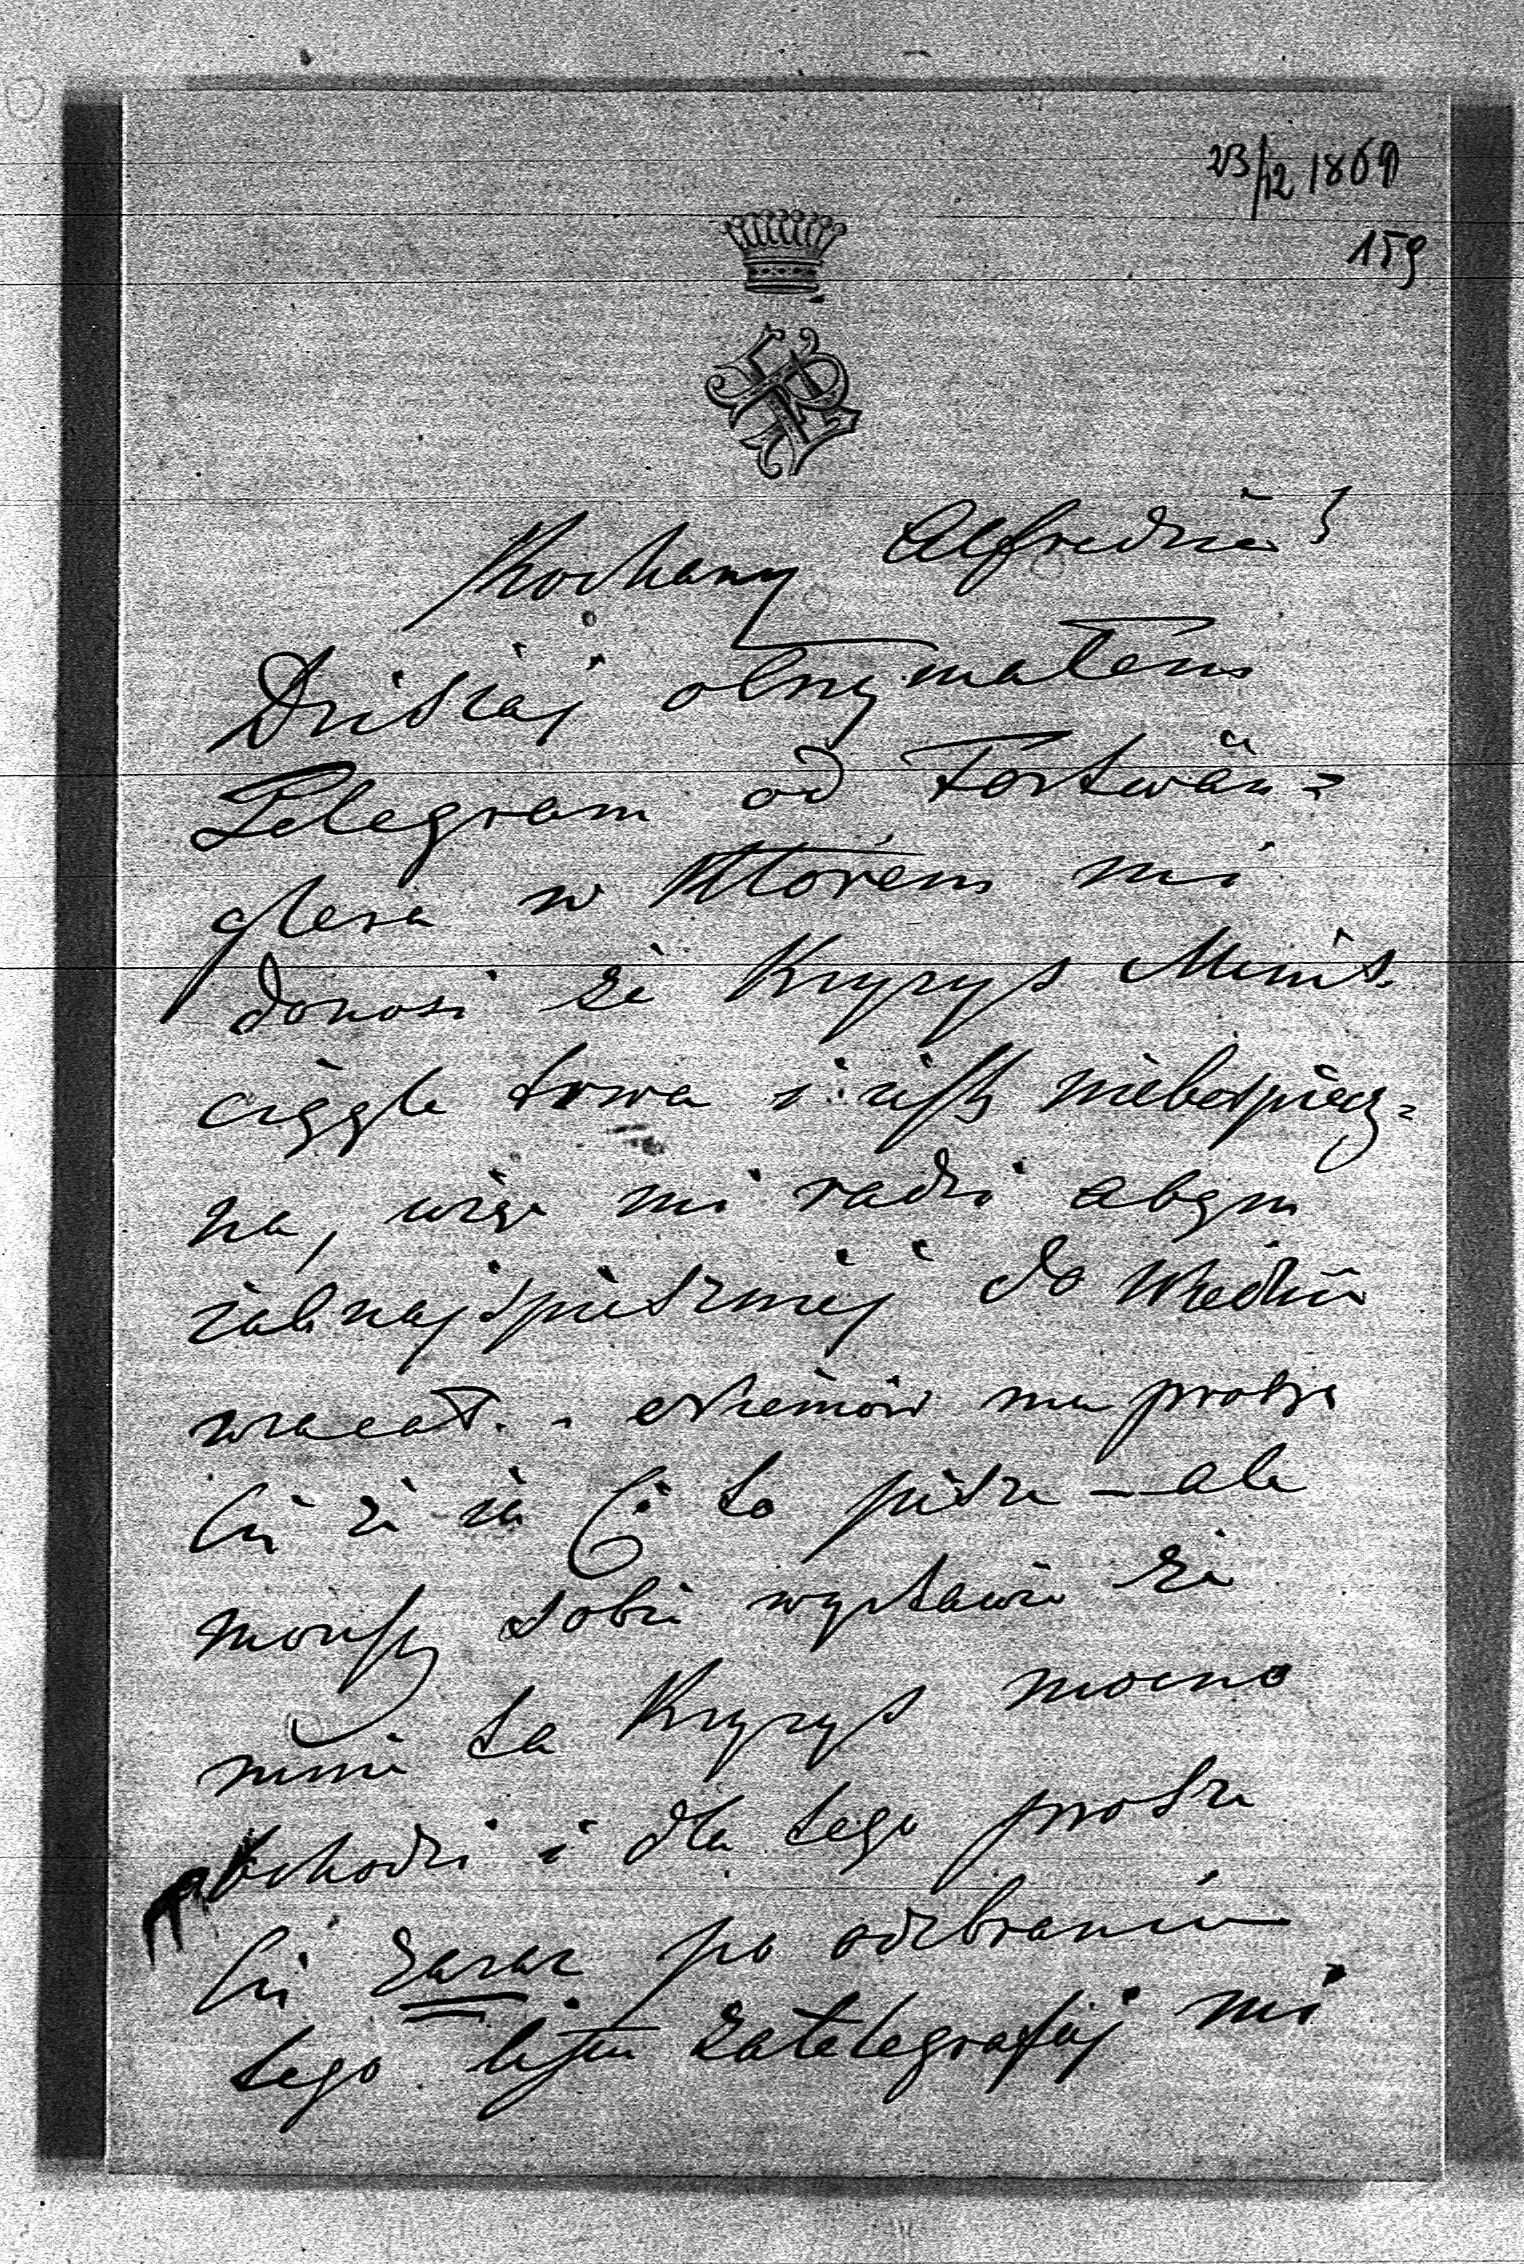 23/12 1869
159
Kochany Alfredzie!
Dzisiaj otrzymałem
Telegram od Fortwän=
glera w którem mi
donosi że Kryzys Minist.
ciągle trwa i niebespiecz=
na, więc mi radzi abym
jaknajśpieszniej do Wiednia
wracał. mu proszę
Cię że Ci to piszę – ale
możesz sobie wystawić że
mnie ta Kryzys mocno
obchodzi i dla tego proszę
Cię zaraz po odebraniu
tego listu zatelegrafuj mi